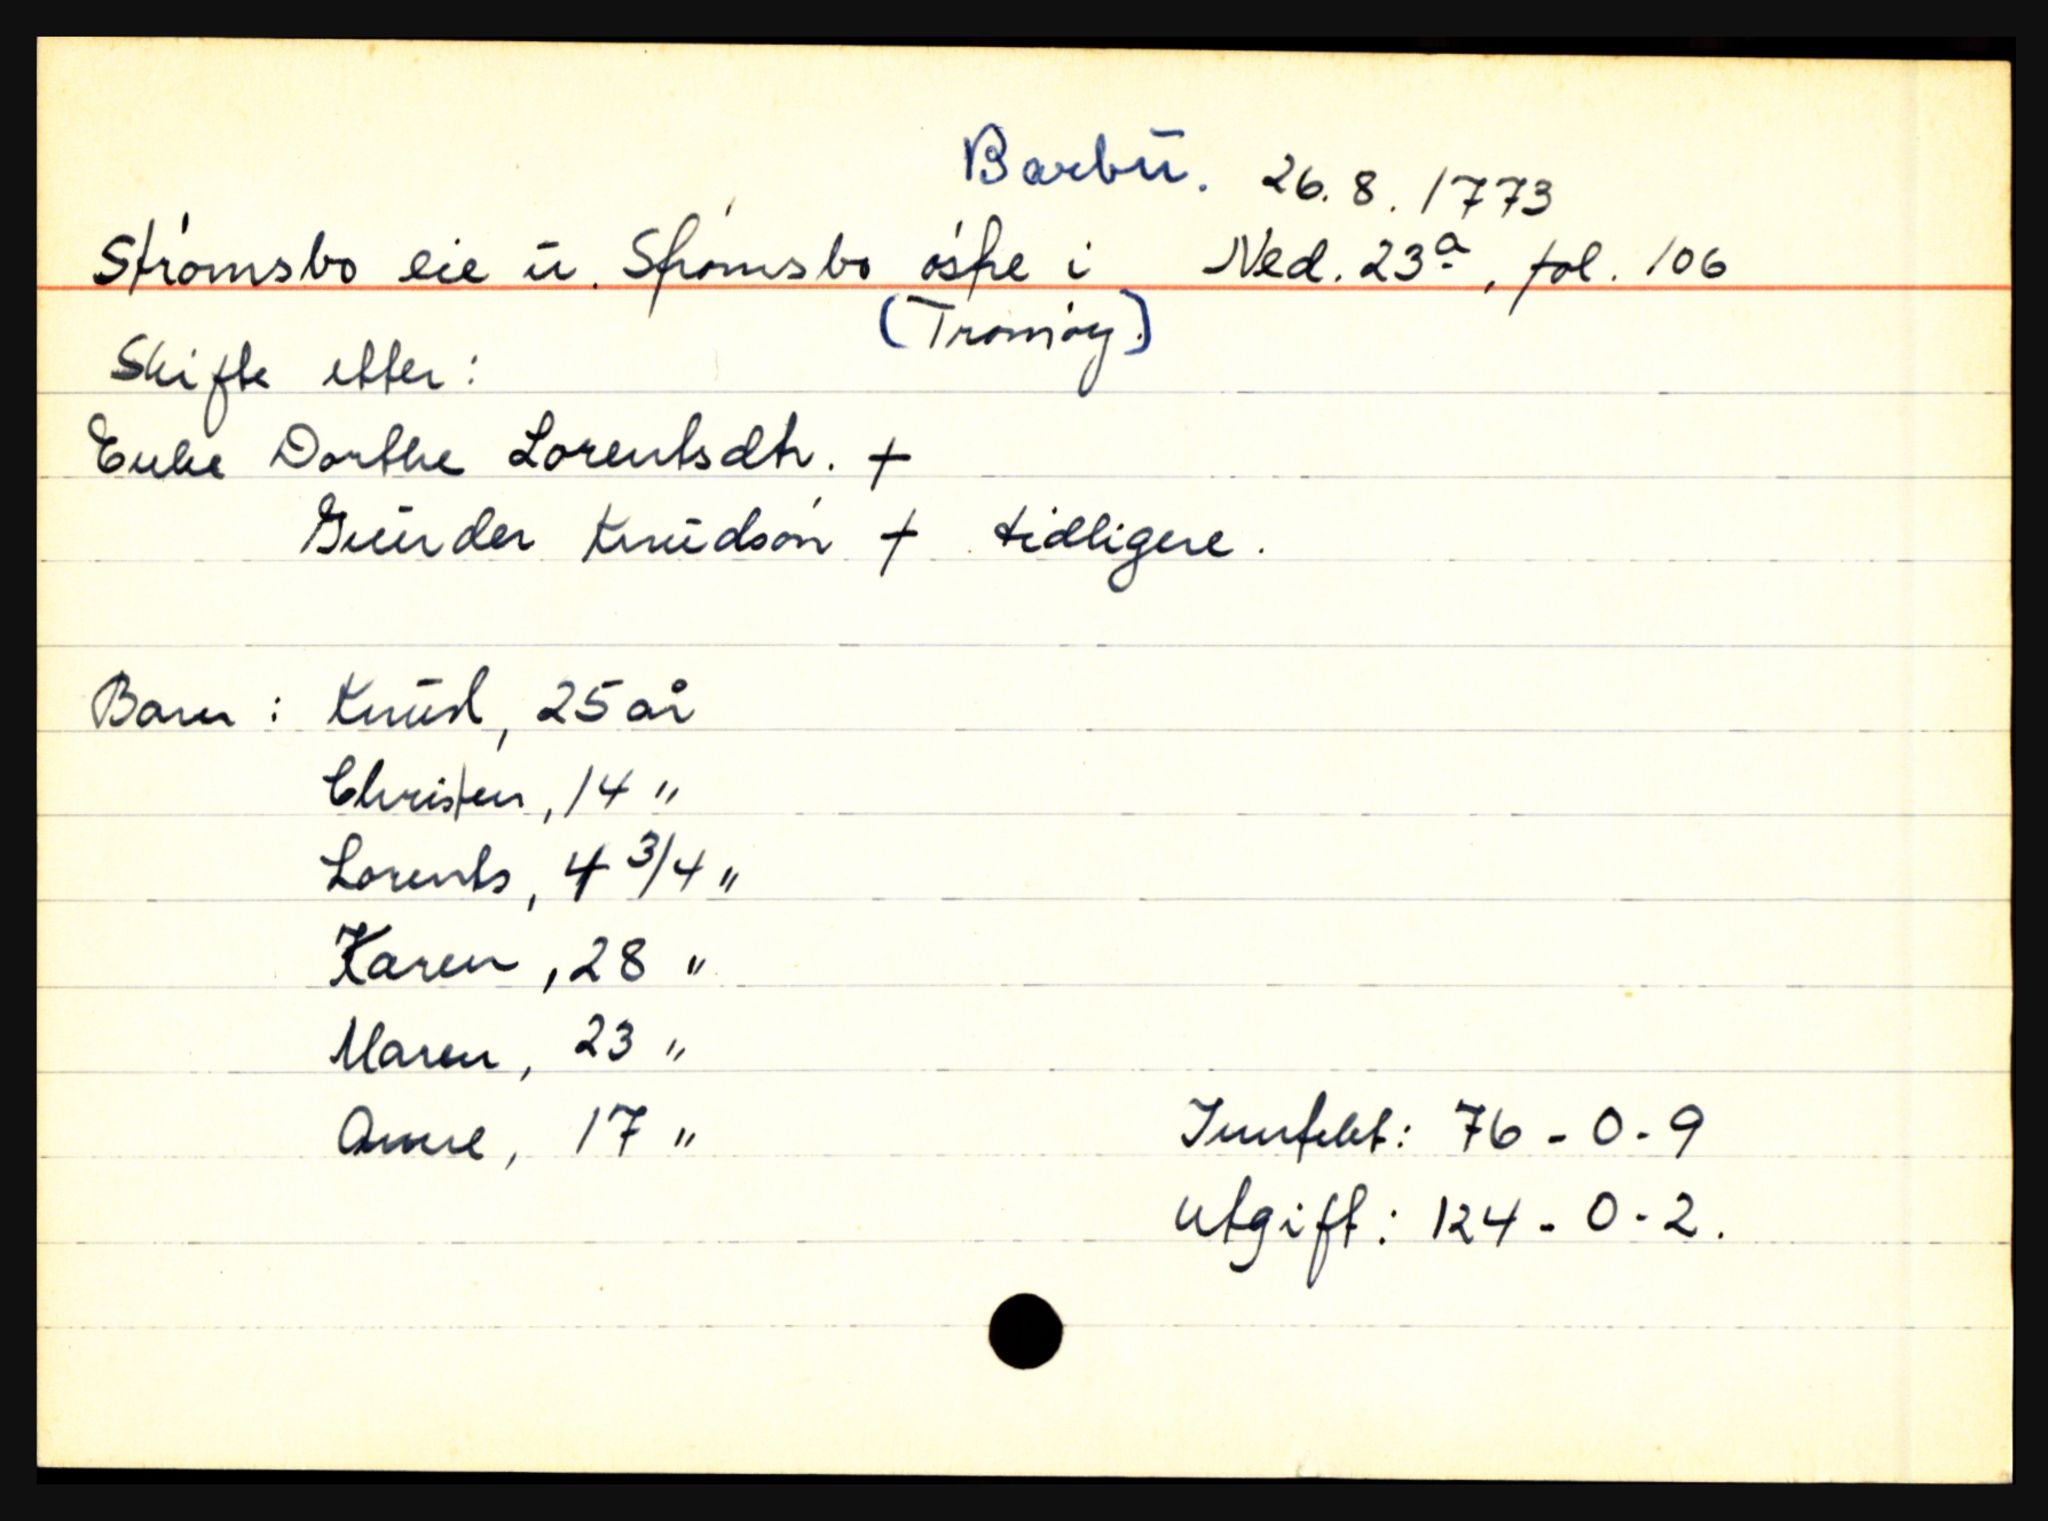 Barbū. 26.8.1773
Strømsbo eie ū. Strømsbo østre i Ned. 23a, fol. 106
(Tromøy.)
Skifte etter:
Enke Dorthe Lorentsdtr. +
Gūnder Knūdsøn + tidligere.
Barn: Knūd, 25 år
Christen, 14 "
Lorents, 4 3/4 "
Karen, 28 "
Maren, 23 "
Anne, 17 " Innfekt: 76 - 0 - 9
Utgift: 124 - 0 - 2.